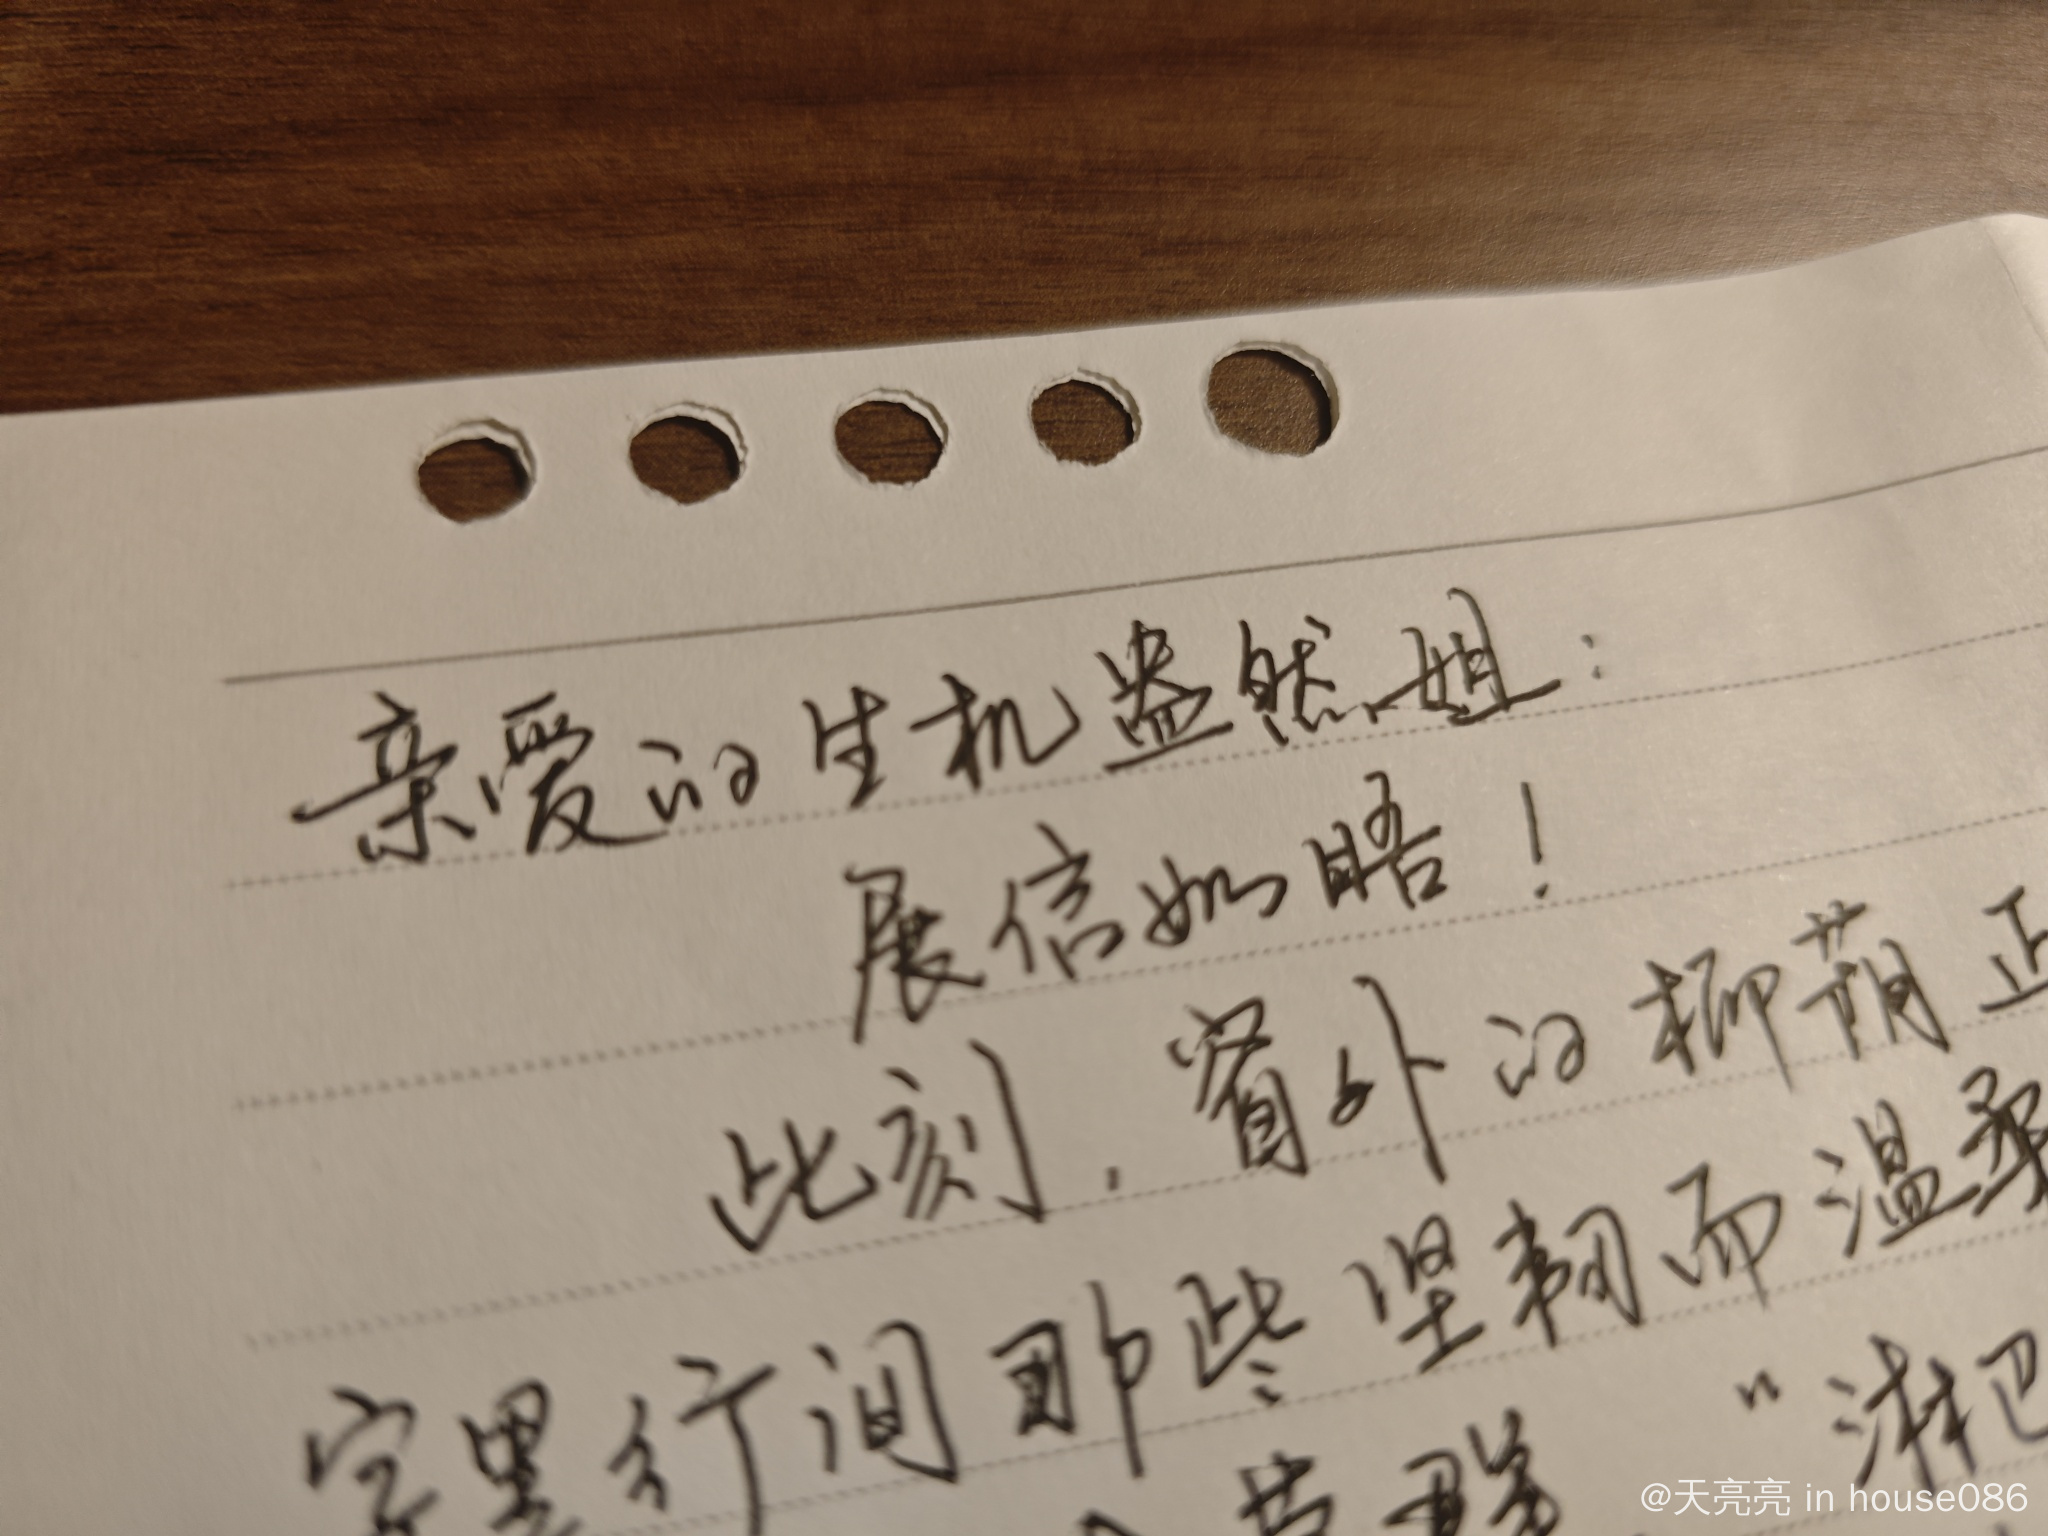 亲爱的生机盎然姐:
展信如晤!
此刻,窗外的柳萌正
字里行间那些坚韧而温柔
"淋巴
@天亮亮 in house086